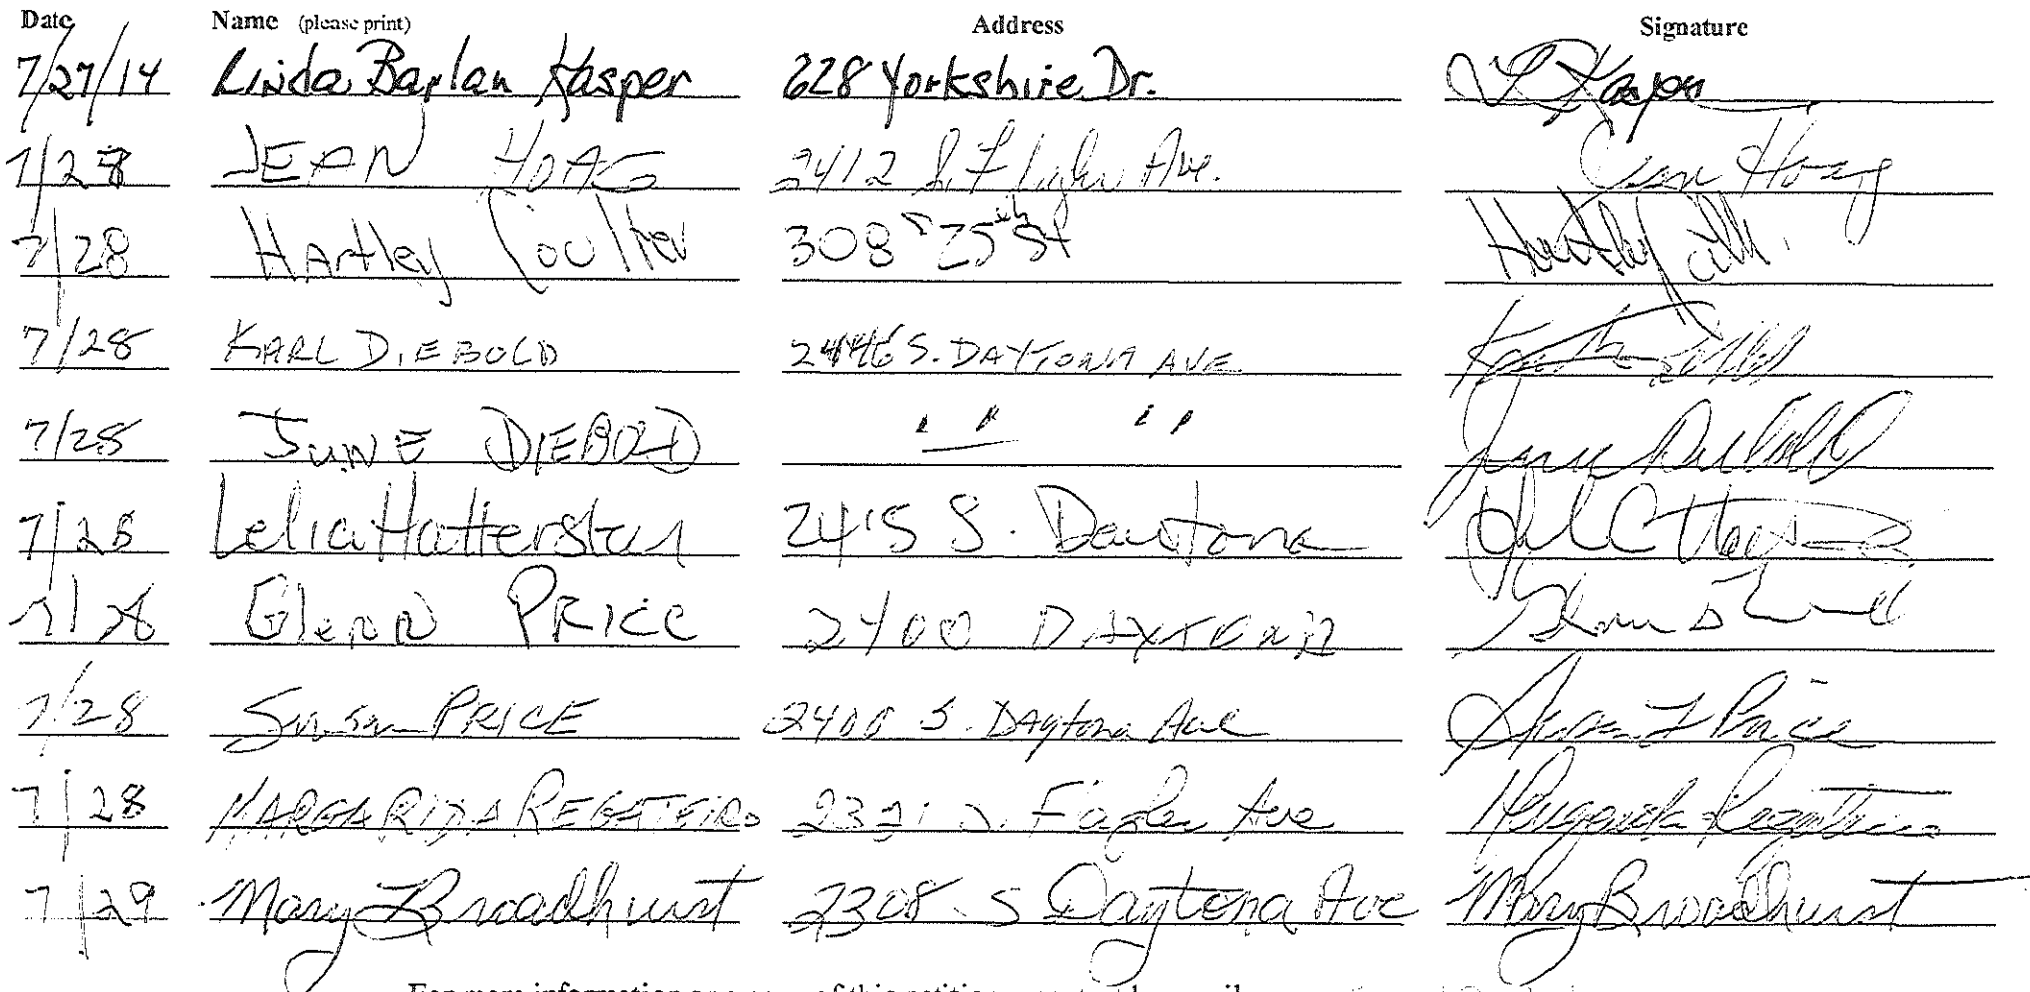 Date Name (please print) Address Signature
7/27/14 Linda Baplan Kasper 628 Yorkshire Dr. L Kasper
7/28 JEAN HOAG 2412 S. Flagler Ave. Jean Hoag
7/28 Hartley Coulter 308 S 25th St
7/28 KARL DIEBOLD 2446 S. DAYTONA AVE
7/28 JUNE DIEBOLD " " " " June Diebold
7/28 Lelia Hatterstan 2415 S. Daytona
7/28 Glenn PRICE 2400 DAYTONA
7/28 Susan PRICE 2400 S. Daytona Ave Susan L Price
7/28 MARGARIDA REGATEIRO 2321 S. Flagler Ave Margarida Regateiro
7/29 Mary Broadhurst 2308 S Daytona Ave Mary Broadhurst
For more information or a copy of this petition